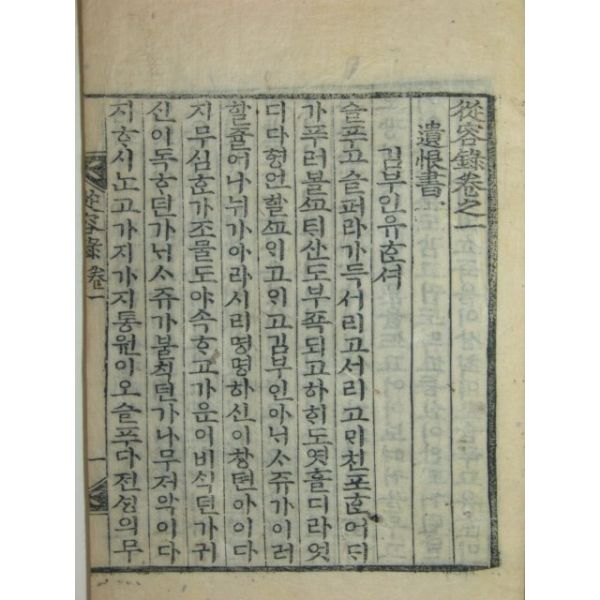 從容錄卷之一
遺恨書
김부인유ᄒᆞᆫ셔
슬푸고슬퍼라가득서리고서리고ᄆᆡ친포ᄒᆞᆫ어ᄃᆡ
가푸러볼ᄭᅩᄐᆡ산도부폭되고하ᄒᆡ도엿흘디라엇
디다형언ᄒᆞᆯᄭᅩᄋᆡ고ᄋᆡ고김부인아ᄂᆡᄉᆞ쥬가이러
할쥴어나뉘가아라시리명명하신이창텬아이다
지무심ᄒᆞᆫ가조물도야속ᄒᆞ고가운이비식턴가귀
신이독ᄒᆞ던가ᄂᆡᄉᆞ쥬가불칙턴가나무저악이다
지ᄒᆞ시노고가지가지통원이오슬푸다전ᄉᆡᆼ의무
從容錄 卷一
一